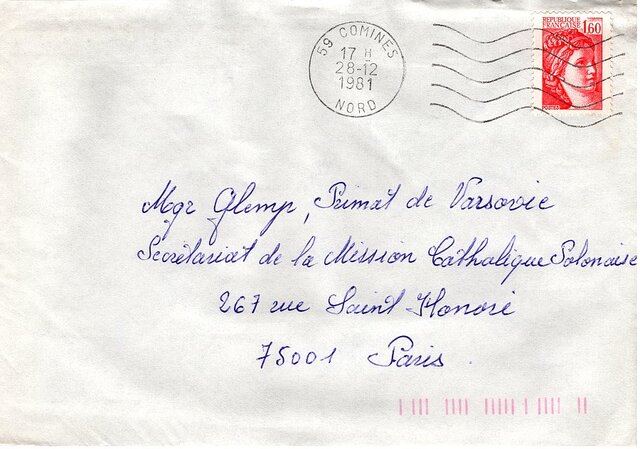 59 COMINES
17 H
28-12
1981
NORD
REPUBLIQUE
FRANÇAISE
1,60
POSTES
Mgr Glemp, Primat de Varsovie
Secrétariat de la Mission Catholique Polonaise
267 rue Saint Honoré
75001 Paris.